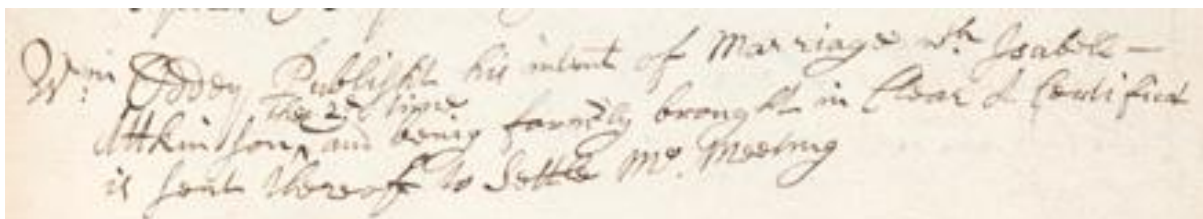 Wm: Oddy Publisht his intent of Marriage wth Isabell
they 2d time
Attkinson ^ and being formerly brought in Clear & Certificat
is sent thereof to Settle Mo. Meeting